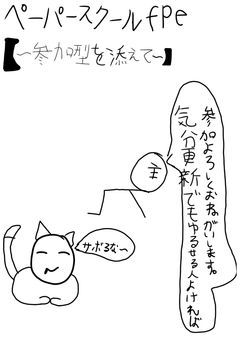 ペーパースクールfpe
【~参加型を添えて~】
参加よろしくおねがいします。
気分更新でもゆるせる人よければ
主
サボるな~